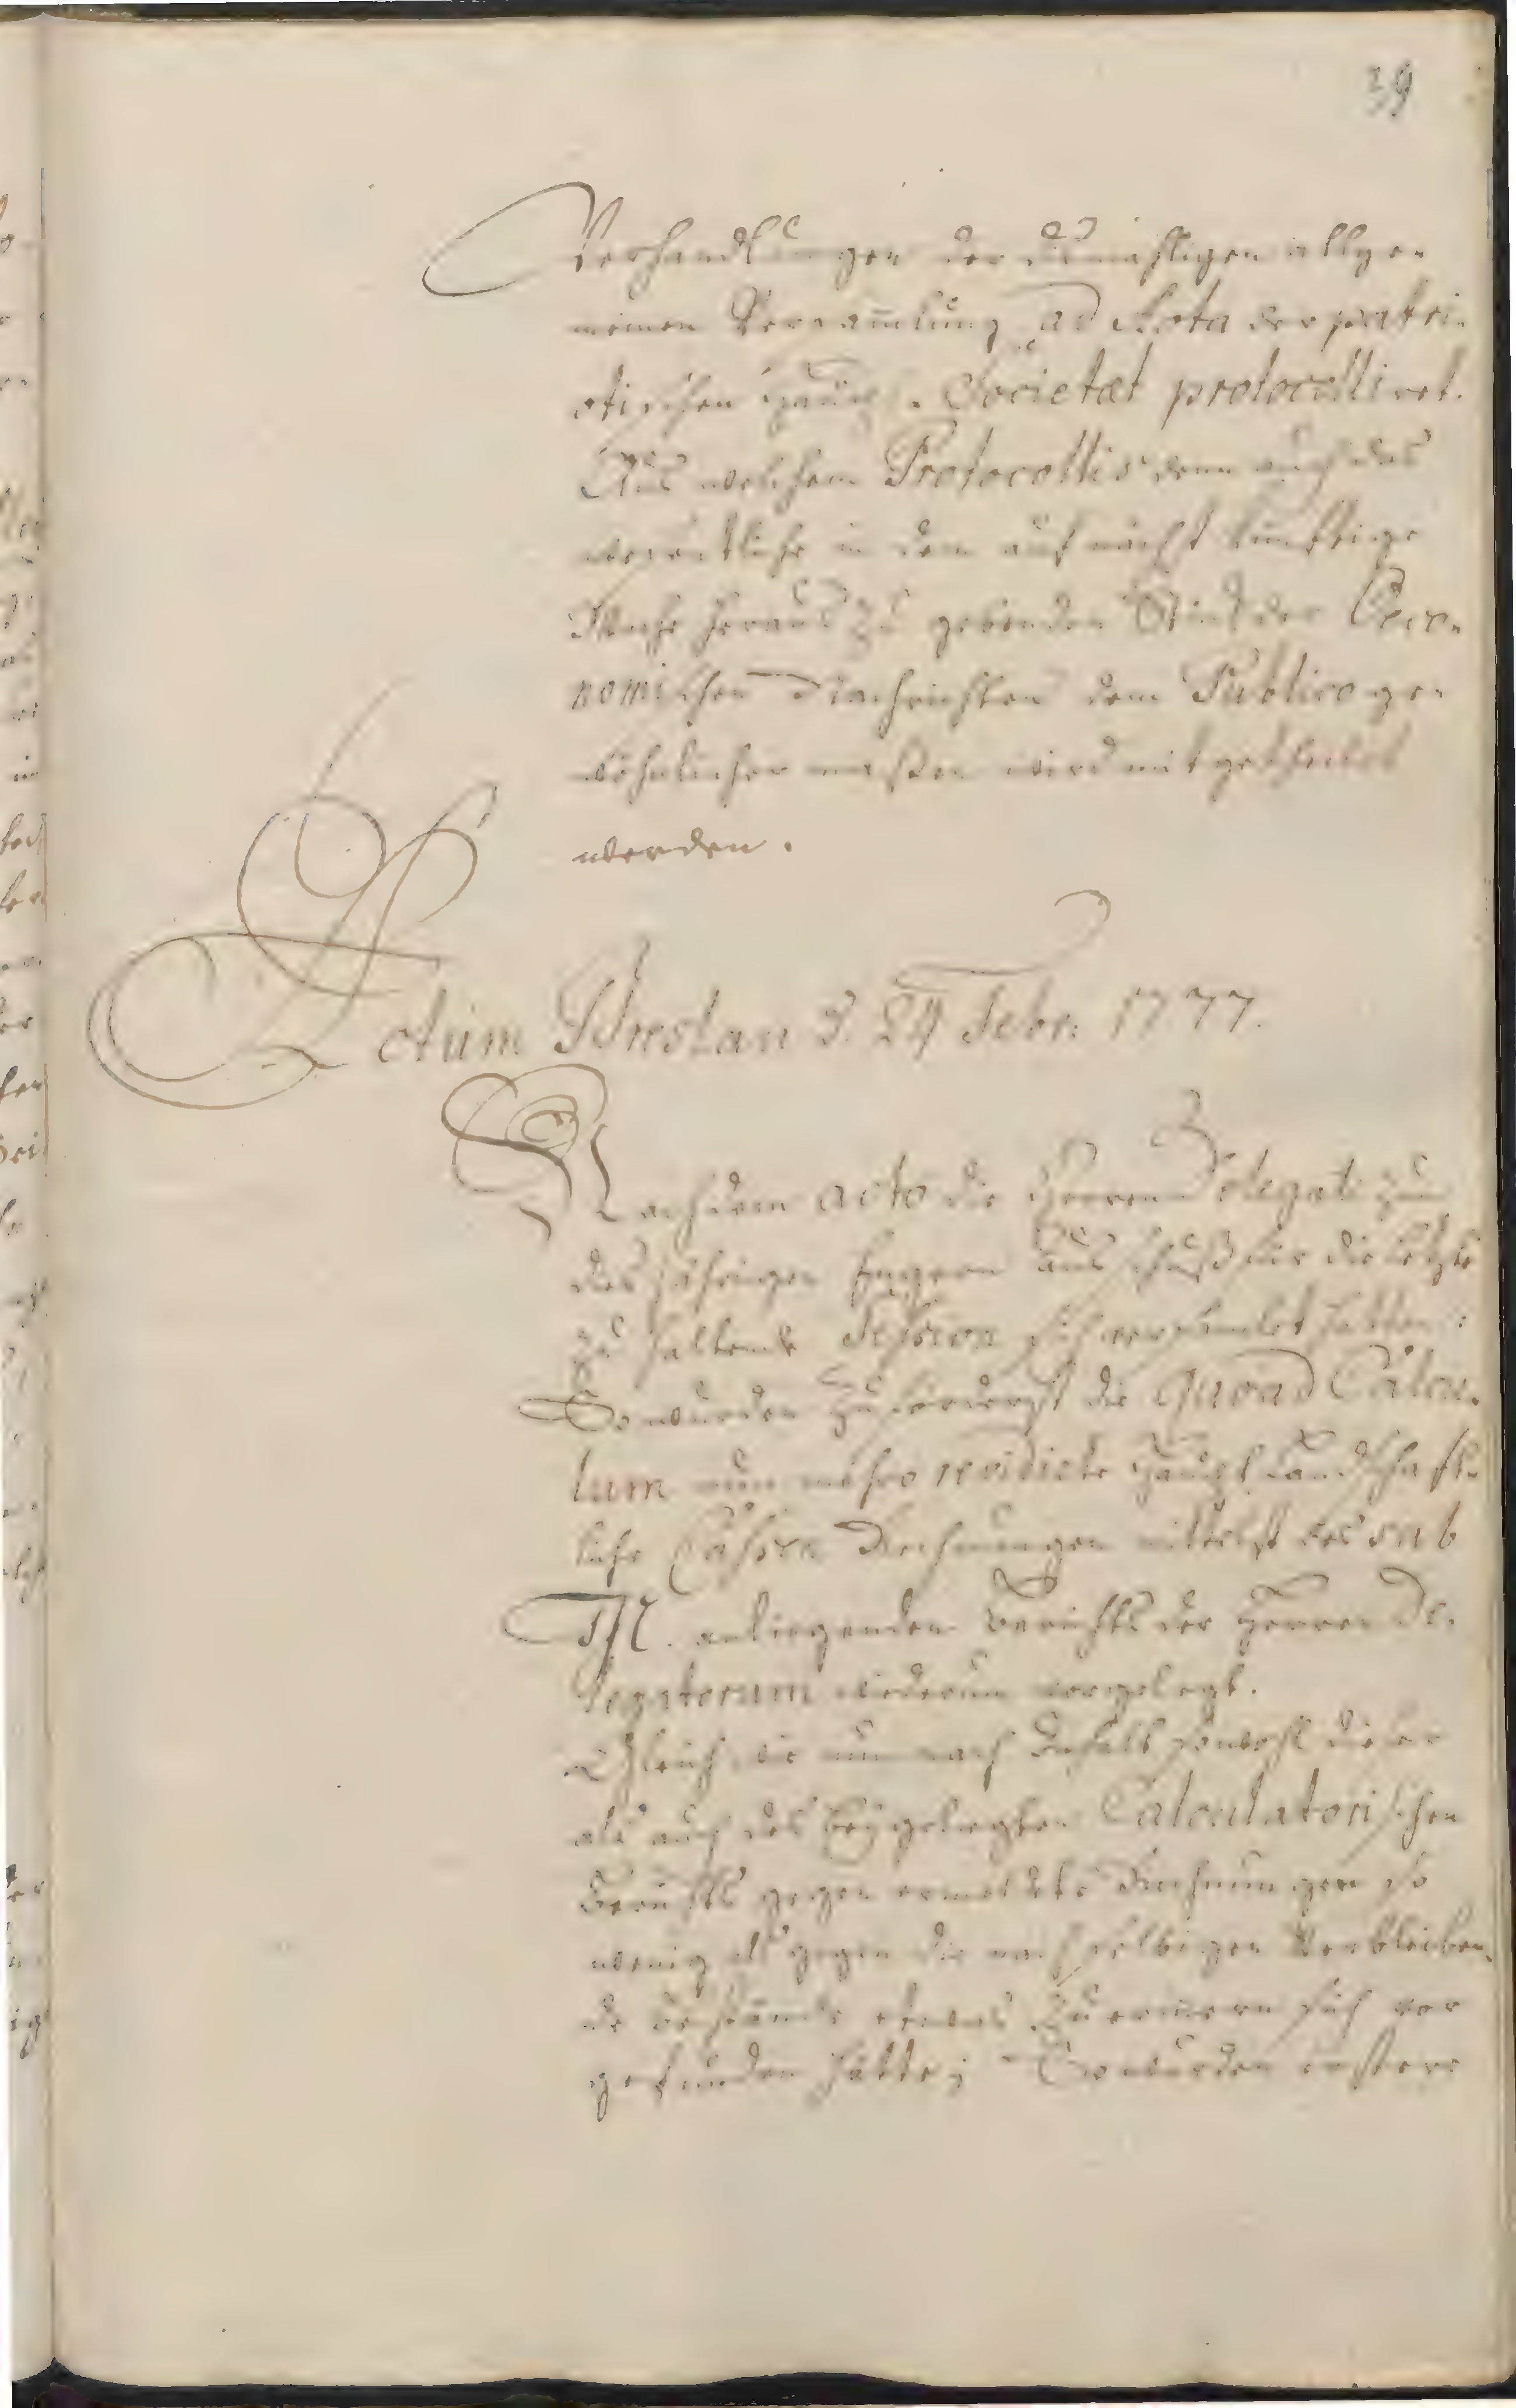 39
Verhandlungen der dismahligen allge-
meinen Versamlung ad Acta der patri-
otischen Haupt-Societæt protocolliret.
Aus welchem Protocollis denn auch das
wesentliche in dem auf nächst künftige
Woche heraus zu gebenden Stück der Oeco-
nomischen Nachrichten dem Publico ge-
wöhnlicher maßen wird mitgetheilet
werden.
Actum Breslau d. 24 Febr. 1777.
Nachdem acto die Herren Delegati zum
dies jährigen Engern Ausschuß für die letzte
zu haltende Session sich versamlet hatten:
So wurden zuförderst die quoad Calcu-
lum nun mehro revidirte Haupt Landschaft-
liche Cassen Rechnungen mittelst des sub
anliegenden Berichts der Herren De-
legatorum wiederum vorgelegt.
Gleich wie nun nach Inhalt sowohl dieses
als auch des beygelegten Calculatorischen
Berichts gegen ermeldete Rechnungen so
wenig als gegen die nach selbigen verbleiben-
de Bestände etwas zu erinnern sich vor
gefunden hätte; So wurden erstere